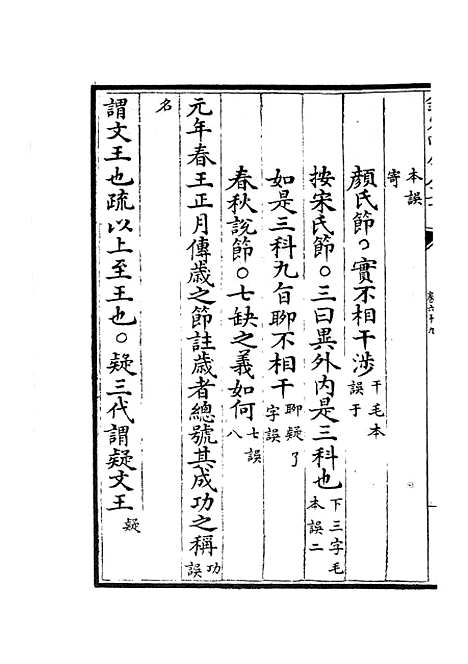 本誤
寄
顏氏節○實不相干涉干毛本誤于
按宋氏節○三曰異外内是三科也下三字毛本誤二
如是三科九㫖聊不相干聊疑了字誤
春秋說節○七缺之義如何七誤八
元年春王正月傳歲之節註歲者總號其成功之稱功誤
名
謂文王也疏以上至王也○疑三代謂疑文王疑